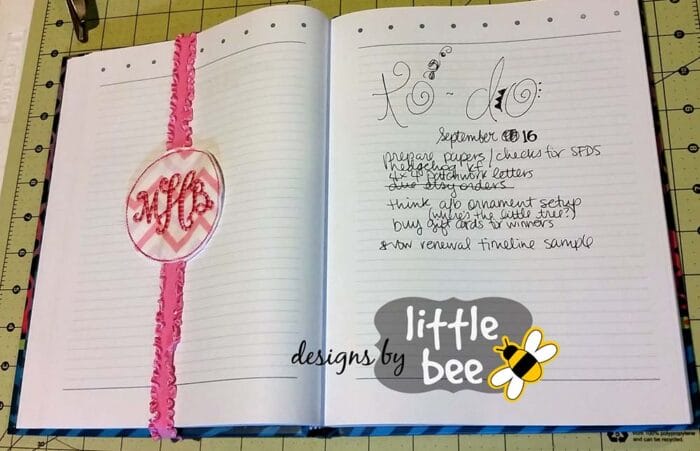 MHB
to-do
September 16
prepare papers/checks for SFDS
hedgehog kf!
4x4 patchwork letters
due etsy orders
think a/b ornament setup
(where's the little tree?)
buy gift cards for winners
vow renewal timeline sample
designs by
little
bee
100% polypropylene
and can be recycled.